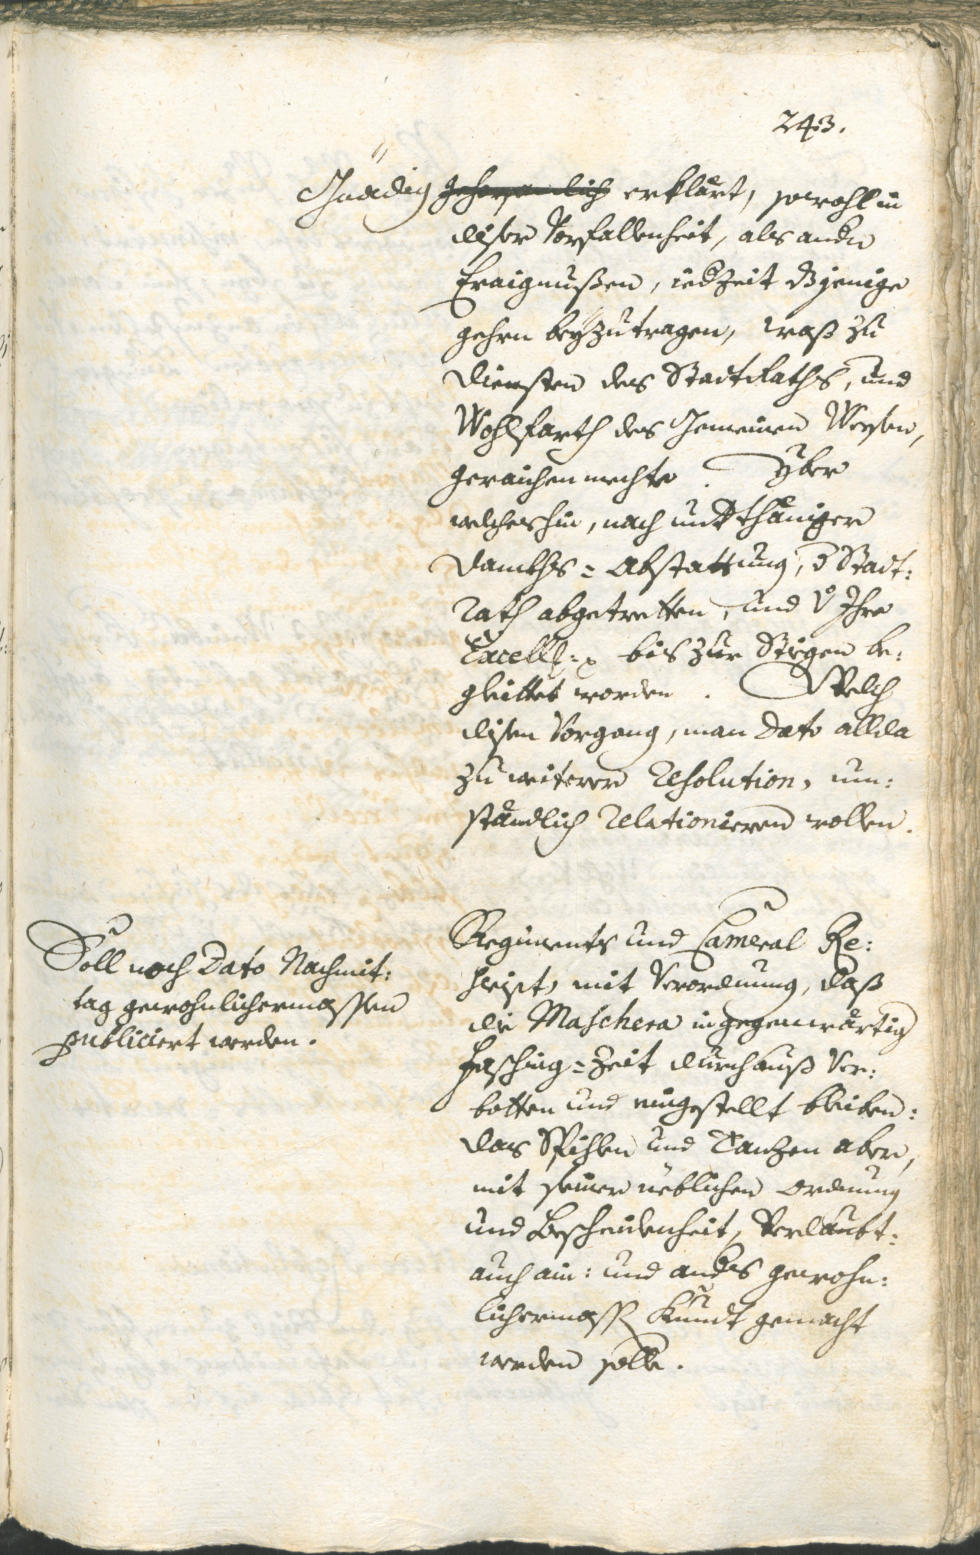 243.
Gnädig gehorsamblich erklärt, sowohl in
diser Vorfallenheit, als andn
Eraignußen, iedzeit dßjenige
gehrn beyzutragen, waß zu
Diensten des Stadtraths, und
Wohlfarth des Gemeinen Wesen,
geraichen mechte. Yber
welcheshin, nach unterthäniger
Dankhs=Abstattung, d Stadt:
Rath abgetretten, und v Ihro
Excell: bis zur Stiegen be:
gleittet worden. Welch
disen Vorgang, man Dato allda
zu weiterer Resolution, um:
ständlich relationieren wollen.
Soll noch Dato Nachmit:
tag gewohnlichermassen
publiciert werden.
Regiments und Cameral Re:
script, mit Verordnung, daß
die Maschera in gegenwärtig
Fasching=Zeit durchauß Ver:
botten und eingestellt bleiben:
das Spihlen und Tantzen aber,
mit seiner üeblichen Ordnung
und Bescheidenheit, Verlaubt:
auch ain: und anders gewohn:
lichermassen kundt gemacht
werden solle.